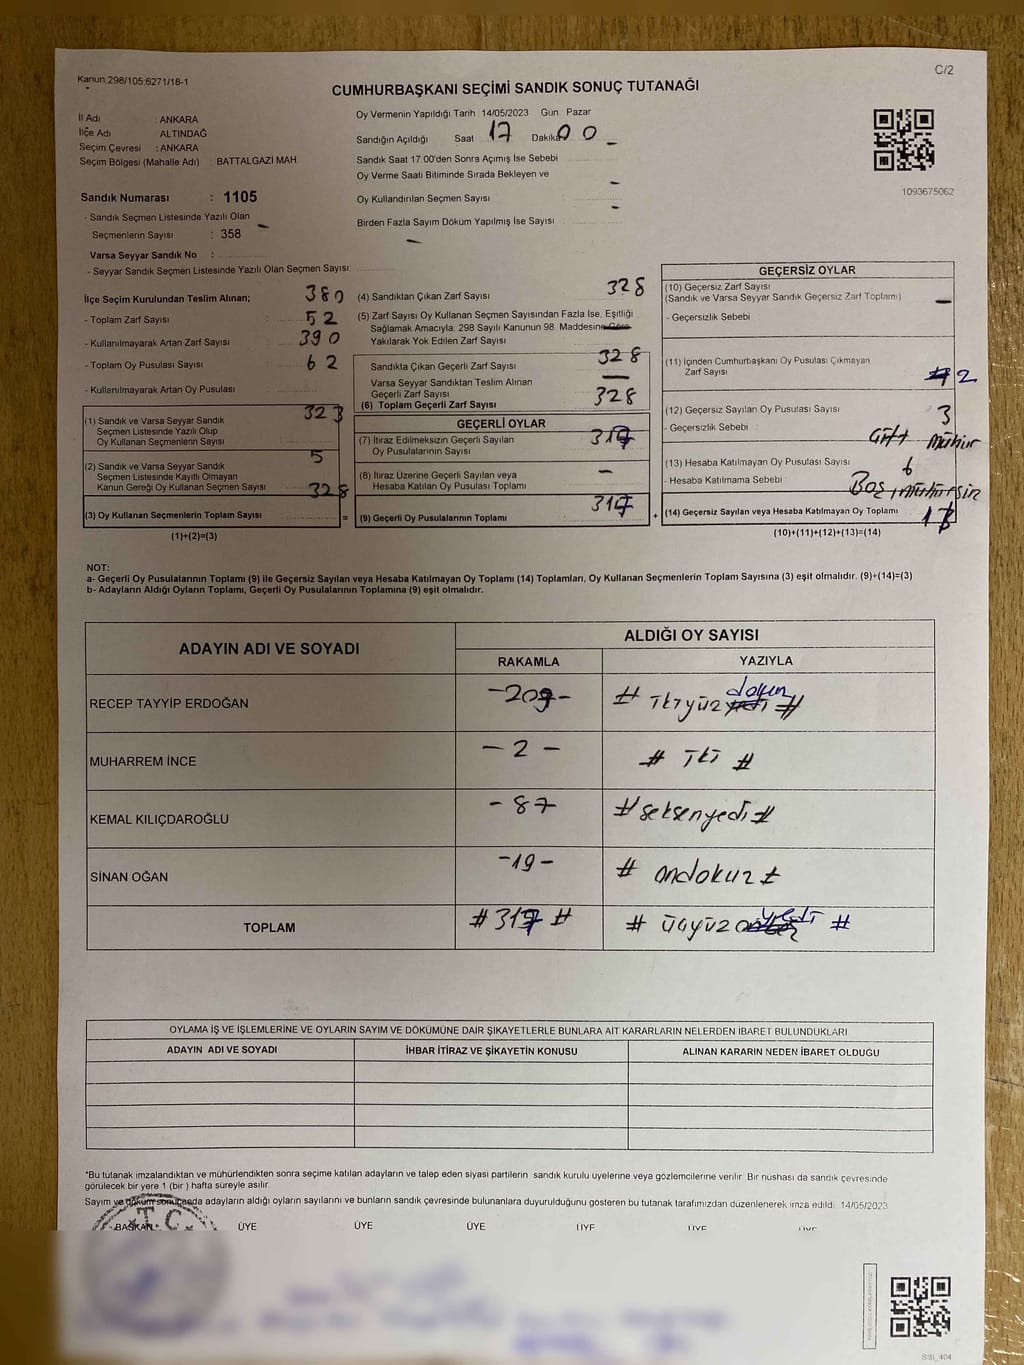 Kanun:298/105:6271/18-1
C/2
CUMHURBAŞKANI SEÇİMİ SANDIK SONUÇ TUTANAĞI
İl Adı : ANKARA
İlçe Adı : ALTINDAĞ
Seçim Çevresi : ANKARA
Seçim Bölgesi (Mahalle Adı) : BATTALGAZİ MAH.
Oy Vermenin Yapıldığı Tarih : 14/05/2023 Gün : Pazar
Sandığın Açıldığı Saat 17 Dakika 00
Sandık Saat 17:00'den Sonra Açımış İse Sebebi
Oy Verme Saati Bitiminde Sırada Bekleyen ve
Oy Kullandırılan Seçmen Sayısı
Birden Fazla Sayım Döküm Yapılmış İse Sayısı
1093675062
Sandık Numarası : 1105
- Sandık Seçmen Listesinde Yazılı Olan
Seçmenlerin Sayısı : 358
Varsa Seyyar Sandık No :
- Seyyar Sandık Seçmen Listesinde Yazılı Olan Seçmen Sayısı:
İlçe Seçim Kurulundan Teslim Alınan; 380
- Toplam Zarf Sayısı 52
- Kullanılmayarak Artan Zarf Sayısı 390
- Toplam Oy Pusulası Sayısı 62
- Kullanılmayarak Artan Oy Pusulası
(1) Sandık ve Varsa Seyyar Sandık 323
Seçmen Listesinde Yazılı Olup
Oy Kullanan Seçmenlerin Sayısı
(2) Sandık ve Varsa Seyyar Sandık 5
Seçmen Listesinde Kayıtlı Olmayan
Kanun Gereği Oy Kullanan Seçmen Sayısı 328
(3) Oy Kullanan Seçmenlerin Toplam Sayısı =
(1)+(2)=(3)
(4) Sandıktan Çıkan Zarf Sayısı 328
(5) Zarf Sayısı Oy Kullanan Seçmen Sayısından Fazla İse, Eşitliği
Sağlamak Amacıyla, 298 Sayılı Kanunun 98. Maddesine Göre
Yakılarak Yok Edilen Zarf Sayısı
Sandıkta Çıkan Geçerli Zarf Sayısı 328
Varsa Seyyar Sandıktan Teslim Alınan
Geçerli Zarf Sayısı
(6) Toplam Geçerli Zarf Sayısı 328
GEÇERLİ OYLAR
(7) İtiraz Edilmeksizin Geçerli Sayılan 317
Oy Pusulalarının Sayısı
(8) İtiraz Üzerine Geçerli Sayılan veya –
Hesaba Katılan Oy Pusulası Toplamı
(9) Geçerli Oy Pusulalarının Toplamı 317 +
GEÇERSİZ OYLAR
(10) Geçersiz Zarf Sayısı
(Sandık ve Varsa Seyyar Sandık Geçersiz Zarf Toplamı) –
- Geçersizlik Sebebi
(11) İçinden Cumhurbaşkanı Oy Pusulası Çıkmayan
Zarf Sayısı 2
(12) Geçersiz Sayılan Oy Pusulası Sayısı 3
- Geçersizlik Sebebi Çift mühür
(13) Hesaba Katılmayan Oy Pusulası Sayısı 6
- Hesaba Katılmama Sebebi Boş, mühürsüz
(14) Geçersiz Sayılan veya Hesaba Katılmayan Oy Toplamı
(10)+(11)+(12)+(13)=(14)
NOT:
a- Geçerli Oy Pusulalarının Toplamı (9) ile Geçersiz Sayılan veya Hesaba Katılmayan Oy Toplamı (14) Toplamları, Oy Kullanan Seçmenlerin Toplam Sayısına (3) eşit olmalıdır. (9)+(14)=(3)
b- Adayların Aldığı Oyların Toplamı, Geçerli Oy Pusulalarının Toplamına (9) eşit olmalıdır.
ADAYIN ADI VE SOYADI
ALDIĞI OY SAYISI
RAKAMLA YAZIYLA
RECEP TAYYİP ERDOĞAN -209- # ikiyüz dokuz #
MUHARREM İNCE - 2 - # iki #
KEMAL KILIÇDAROĞLU - 87 # seksenyedi #
SİNAN OĞAN -19- # ondokuz #
TOPLAM # 317 # # üçyüz onyedi #
OYLAMA İŞ VE İŞLEMLERİNE VE OYLARIN SAYIM VE DÖKÜMÜNE DAİR ŞİKAYETLERLE BUNLARA AİT KARARLARIN NELERDEN İBARET BULUNDUKLARI
ADAYIN ADI VE SOYADI İHBAR İTİRAZ VE ŞİKAYETİN KONUSU ALINAN KARARIN NEDEN İBARET OLDUĞU
*Bu tutanak imzalandıktan ve mühürlendikten sonra seçime katılan adayların ve talep eden siyasi partilerin sandık kurulu üyelerine veya gözlemcilerine verilir. Bir nüshası da sandık çevresinde
görülecek bir yere 1 (bir ) hafta süreyle asılır.
Sayım ve döküm sonucunda adayların aldığı oyların sayılarını ve bunların sandık çevresinde bulunanlara duyurulduğunu gösteren bu tutanak tarafımızdan düzenlenerek imza edildi. 14/05/2023
T.C.
BAŞKAN ÜYE ÜYE ÜYE ÜYE ÜYE ÜYE